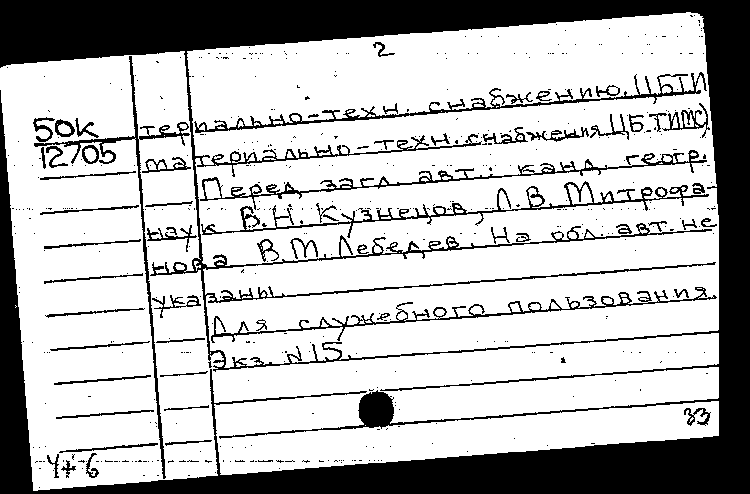 2
50к
12705
териально-техн. снабжению. ЦБТИ
материально-техн. снабжения ЦБТИМС)
Перед загл. авт.: канд. геогр.
наук В.Н. Кузнецов, Л.В. Митрофа-
нова, В.М. Лебедев. На обл. авт. не
указаны.
Для служебного пользования.
Экз. N 15.
33
4+6